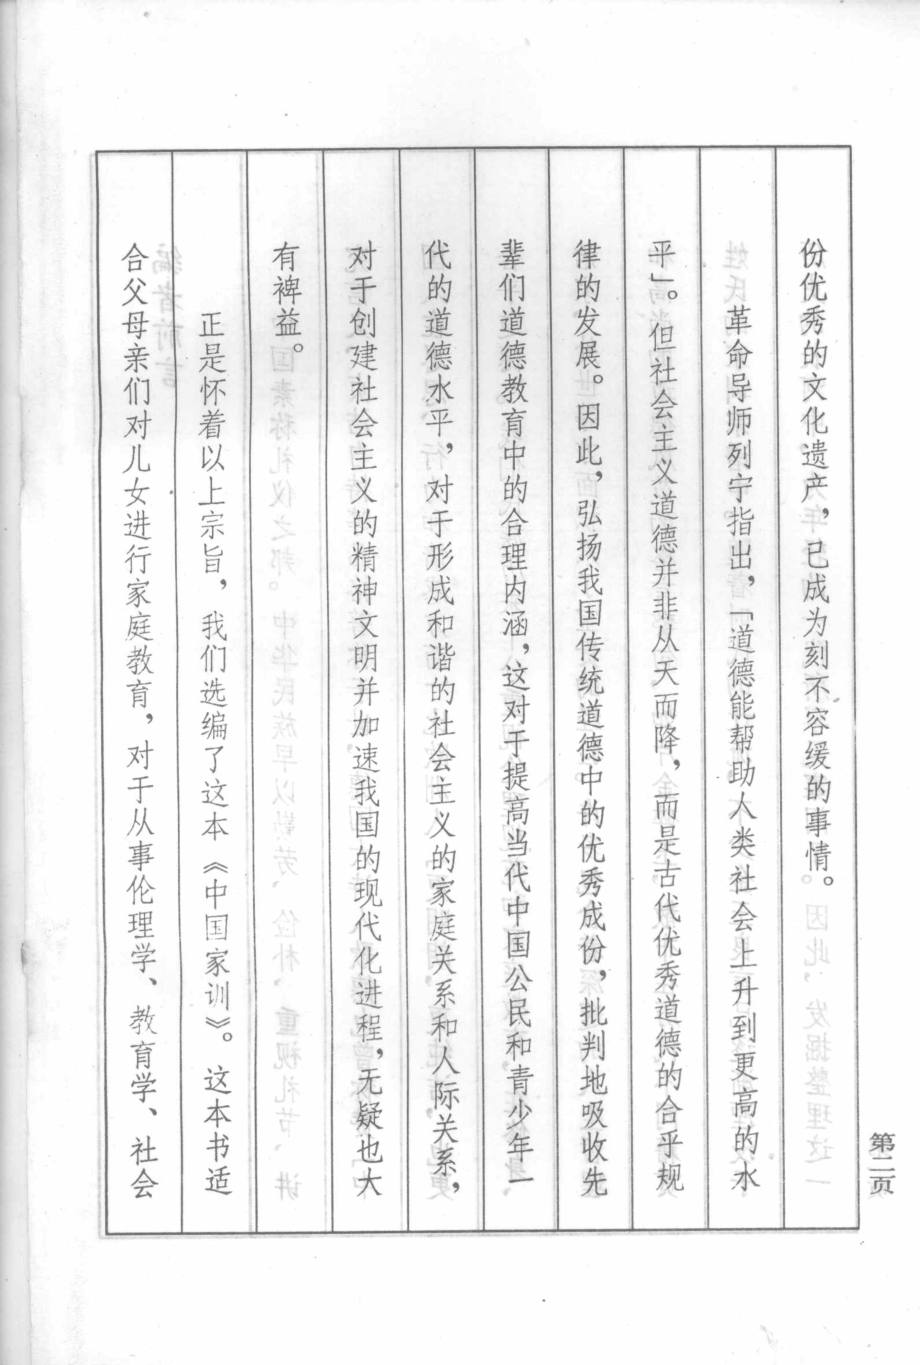 份优秀的文化遗产，已成为刻不容缓的事情。
革命导师列宁指出，「道德能帮助人类社会上升到更高的水
平」。但社会主义道德并非从天而降，而是古代优秀道德的合乎规
律的发展。因此，弘扬我国传统道德中的优秀成份，批判地吸收先
辈们道德教育中的合理内涵，这对于提高当代中国公民和青少年一
代的道德水平，对于形成和谐的社会主义的家庭关系和人际关系，
对于创建社会主义的精神文明并加速我国的现代化进程，无疑也大
有裨益。
正是怀着以上宗旨，我们选编了这本《中国家训》。这本书适
合父母亲们对儿女进行家庭教育，对于从事伦理学、教育学、社会
第二页